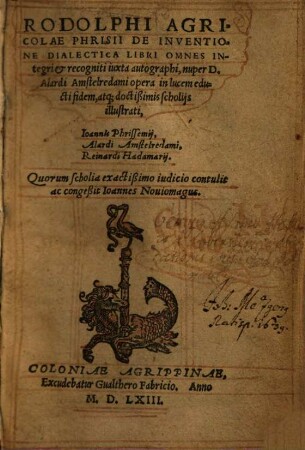 RODOLPHI AGRI-
COLAE PHRISII DE INVENTIO-
NE DIALECTICA LIBRI OMNES IN-
tegri & recogniti iuxta autographi, nuper D.
Alardi Amstelredami opera in lucem edu-
cti fidem, atq; doctißimis scholijs
illustrati,
Ioannis Phrissemij,
Alardi Amstelredami,
Reinardi Hadamarij.
Quorum scholia exactißimo iudicio contulit
ac congeßit Ioannes Nouiomagus.
COLONIAE AGRIPPINAE,
Excudebatur Gualthero Fabricio. Anno
M. D. LXIII.